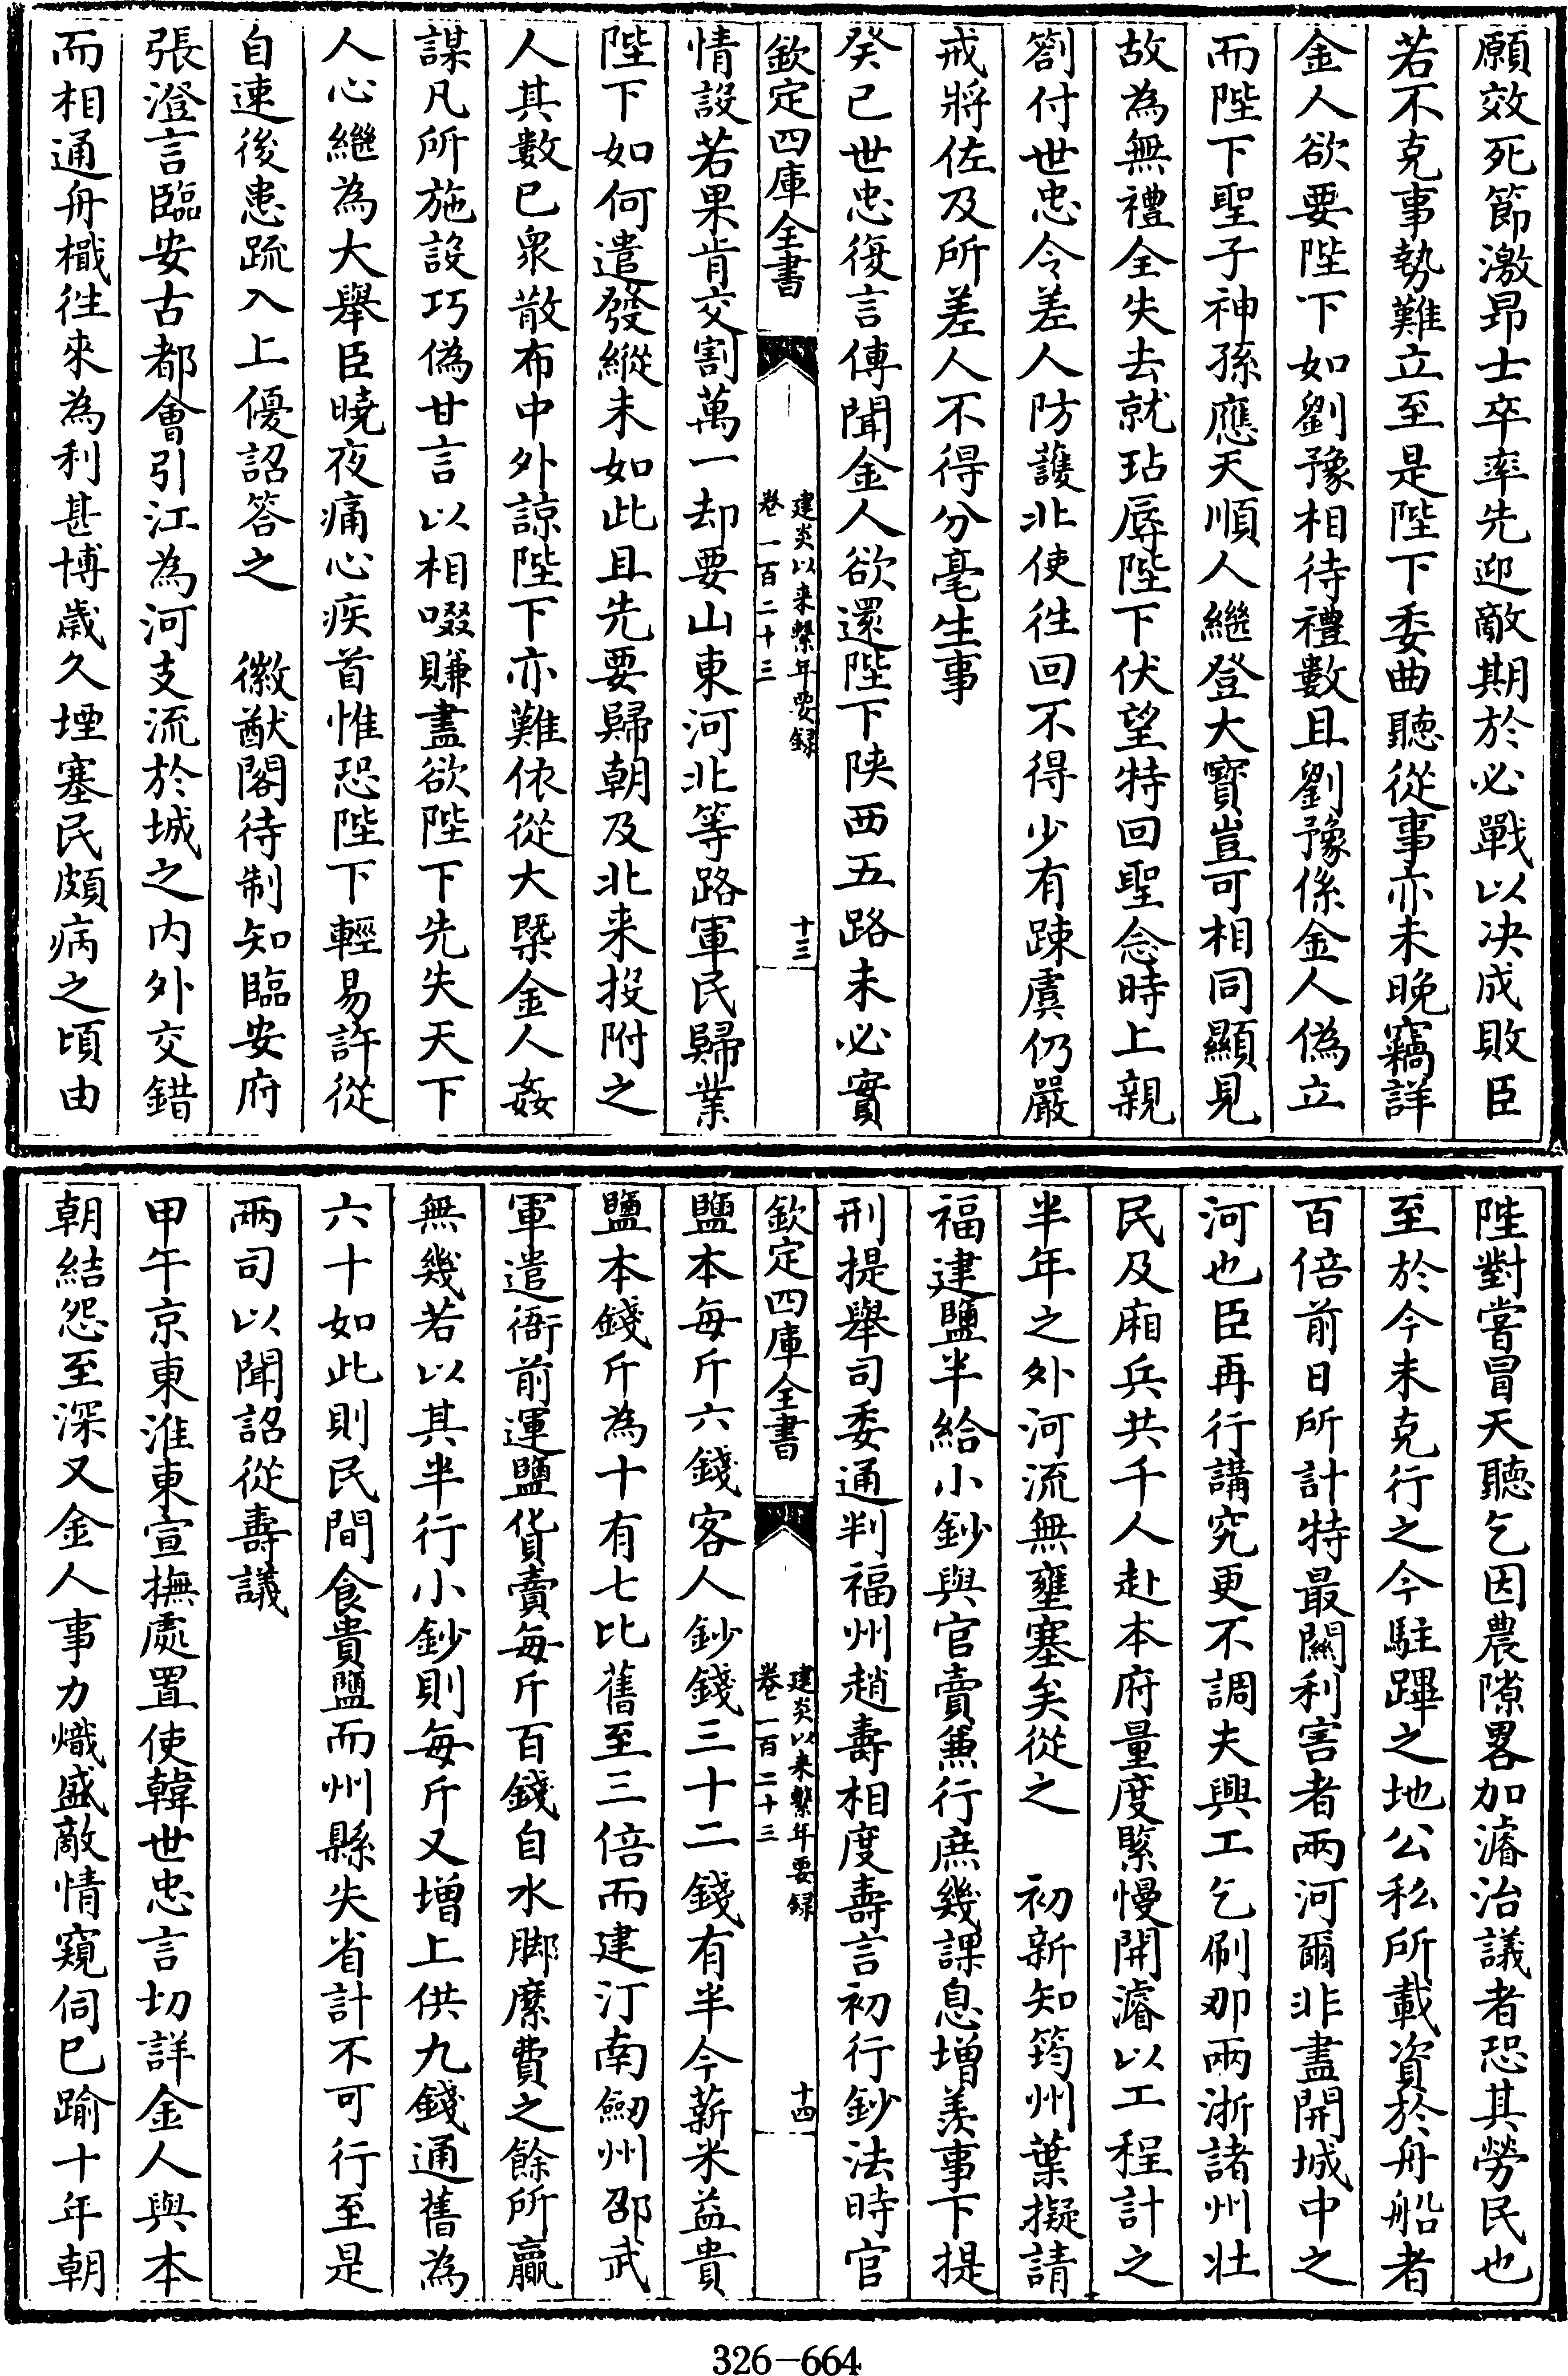 願效死節激昂士卒率先迎敵期於必戰以决成敗臣
若不克事勢難立至是陛下委曲聽從事亦未晚竊詳
金人欲要陛下如劉豫相待禮數且劉豫係金人偽立
而陛下聖子神孫應天順人繼登大寳豈可相同顯見
故為無禮全失去就玷辱陛下伏望特回聖念時上親
劄付世忠令差人防護北使徃回不得少有踈虞仍嚴
戒將佐及所差人不得分毫生事
癸已世忠復言傳聞金人欲還陛下陜西五路未必實
欽定四庫全書
建炎以来繫年要録
卷一百二十三
十三
情設若果肯交割萬一却要山東河北等路軍民歸業
陛下如何遣發縱未如此且先要歸朝及北来投附之
人其數已衆散布中外諒陛下亦難依從大槩金人姦
謀凡所施設巧偽甘言以相啜賺盡欲陛下先失天下
人心繼為大舉臣曉夜痛心疾首惟恐陛下輕易許從
自速後患疏入上優詔答之　徽猷閣待制知臨安府
張澄言臨安古都會引江為河支流於城之内外交錯
而相通舟檝徃來為利甚博歲久堙塞民頗病之頃由
陛對嘗冒天聽乞因農隙畧加濬治議者恐其勞民也
至於今未克行之今駐蹕之地公私所載資於舟船者
百倍前日所計特最闗利害者兩河爾非盡開城中之
河也臣再行講究更不調夫興工乞刷那兩浙諸州壮
民及廂兵共千人赴本府量度緊慢開濬以工程計之
半年之外河流無壅塞矣從之　初新知筠州葉擬請
福建鹽半給小鈔與官賣兼行庶幾課息增羨事下提
刑提舉司委通判福州趙壽相度壽言初行鈔法時官
欽定四庫全書
建炎以来繫年要録
卷一百二十三
十四
鹽本每斤六錢客人鈔錢三十二錢有半今薪米益貴
鹽本錢斤為十有七比舊至三倍而建汀南劒州邵武
軍遣衙前運鹽貨賣每斤百錢自水脚縻費之餘所贏
無幾若以其半行小鈔則每斤又增上供九錢通舊為
六十如此則民間食貴鹽而州縣失省計不可行至是
兩司以聞詔從壽議
甲午京東淮東宣撫處置使韓世忠言切詳金人與本
朝結怨至深又金人事力熾盛敵情窺伺已踰十年朝
326-664